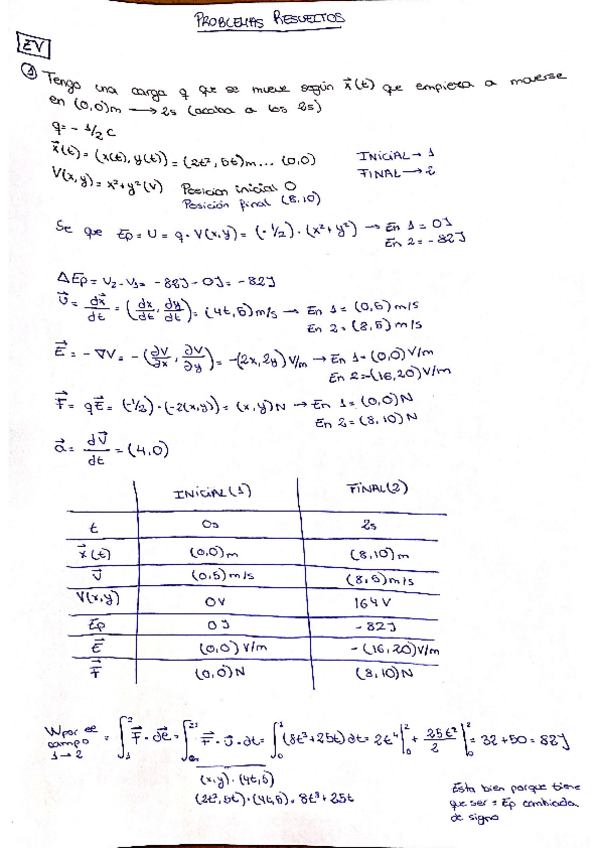 PROBLEMAS RESUELTOS
EV
① Tengo una carga q que se mueve según x⃗(t) que empieza a moverse
en (0,0)m ⟶ 2s (acaba a los 2s)
q = - 1/2 C
x⃗(t) = (x(t), y(t)) = (2t², 5t)m... (0,0)
INICIAL → 1
FINAL → 2
V(x,y) = x²+y² (V) Posición inicial 0
Posición final (8,10)
Se que Ep = U = q · V(x,y) = (-1/2) · (x²+y²) → En 1 = 0J
En 2 = -82J
ΔEp = U₂ - U₁ = -82J - 0J = -82J
v⃗ = dx⃗/dt = (dx/dt, dy/dt) = (4t,5)m/s → En 1 = (0,5)m/s
En 2 = (8,5)m/s
E⃗ = -∇V = -(∂V/∂x, ∂V/∂y) = -(2x,2y)V/m → En 1 = (0,0)V/m
En 2 = -(16,20)V/m
F⃗ = qE⃗ = (-1/2)·(-2(x,y)) = (x,y)N → En 1 = (0,0)N
En 2 = (8,10)N
a⃗ = dv⃗/dt = (4,0)
INICIAL(1) FINAL(2)
t 0s 2s
x⃗(t) (0,0)m (8,10)m
v⃗ (0,5)m/s (8,5)m/s
V(x,y) 0V 164V
Ep 0J -82J
E⃗ (0,0)V/m -(16,20)V/m
F⃗ (0,0)N (8,10)N
W por el campo 1→2 = ∫₁² F⃗·dl⃗ = ∫ F⃗·v⃗·dt = ∫₀² (8t³+25t)dt = 2t⁴|₀² + 25t²/2|₀² = 32+50 = 82J
(x,y)·(4t,5)
(2t²,5t)·(4t,5) = 8t³+25t
Esta bien porque tiene
que ser = Ep cambiada
de signo